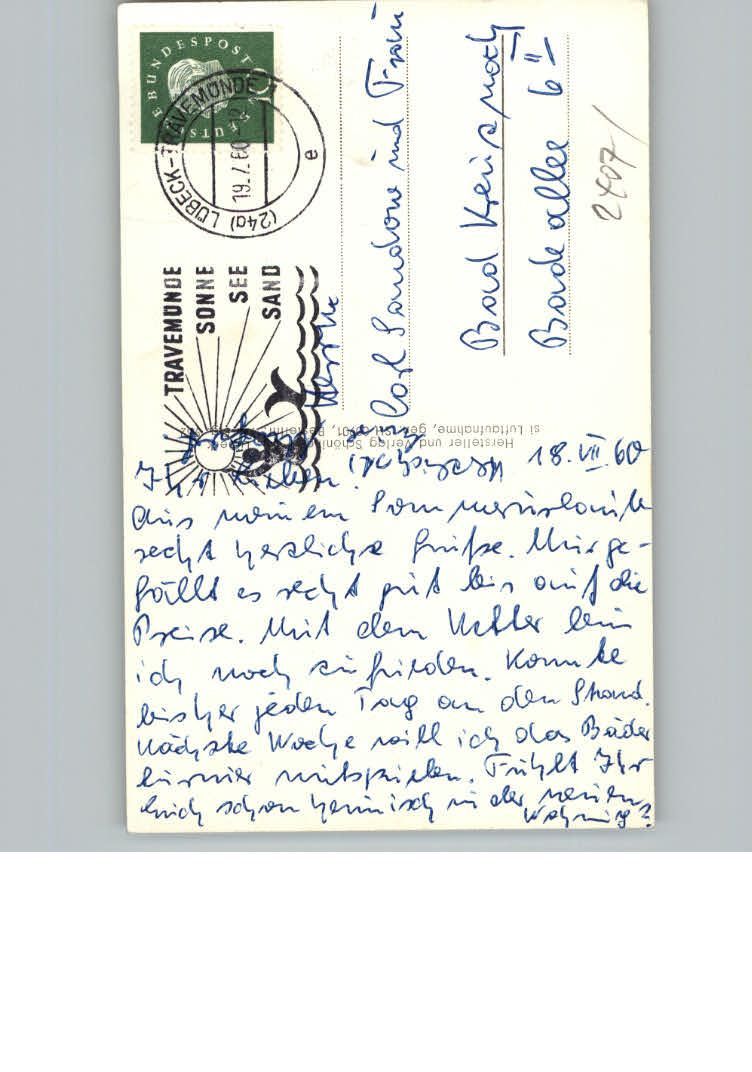 DEUTSCHE BUNDESPOST
10
(24a) LÜBECK-TRAVEMÜNDE 1
19.7.60-12
e
TRAVEMÜNDE
SONNE
SEE
SAND
Herrn
Carl Sandow und Frau
Bad Kreuznach
Badeallee 6 II
2407/
Hersteller und Verlag Schöning
si Luftaufnahme, gen.
18. VII. 60
Ihr Lieben!
Aus meinem Sommerurlaub
recht herzliche Grüße. Mir ge-
fällt es recht gut bis auf die
Preise. Mit dem Wetter bin
ich noch zufrieden. Konnte
bisher jeden Tag an den Strand.
Nächste Woche will ich das Bäder
turnier mitspielen. Fühlt Ihr
Euch schon heimisch in der neuen
Wohnung?